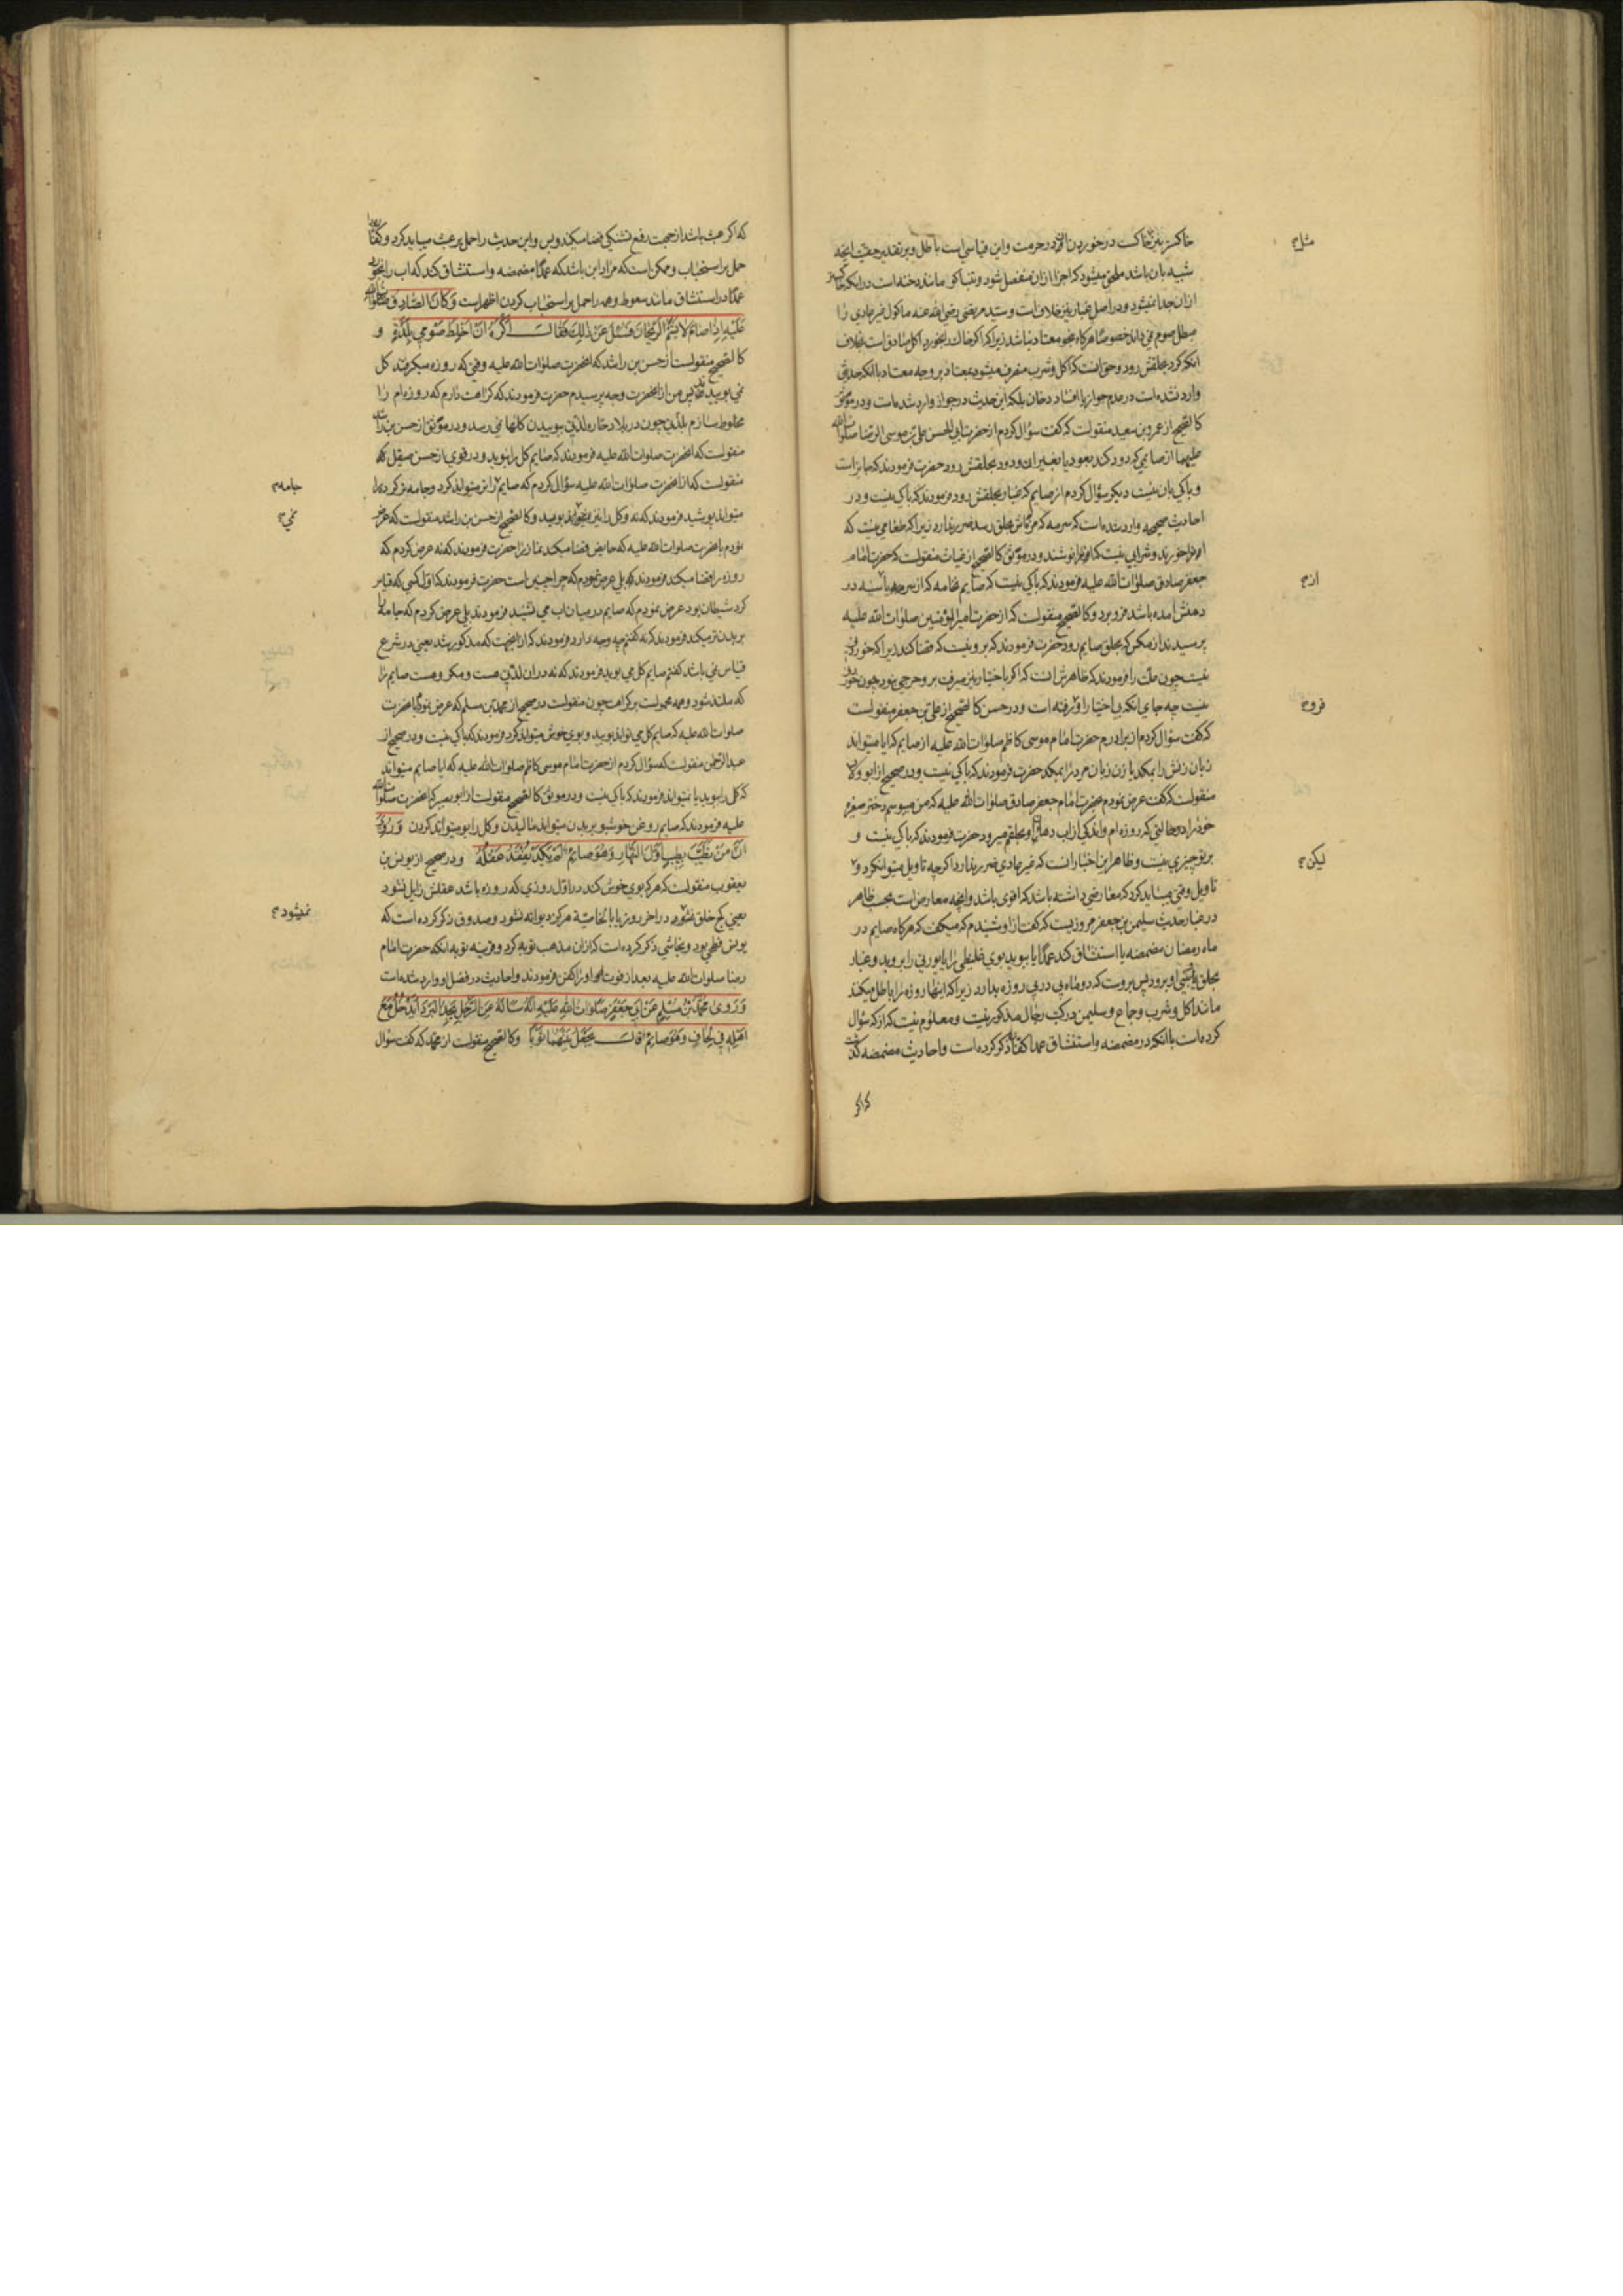 خاکستر نیز خاکست در خوردن در حرمت و این قیاسی است باطل و بر تقدیر حقیت آنچه
شبیه بان باشد ملحق میشود که اجزا از ان منفصل شود و تنباکو مانند دخنه است در انکه
ازان جدا نمیشود و در اصل غبار نیز خلافست و سید مرتضی رضی الله عنه ماکول غیر عادی را
مبطل صوم نمی داند خصوصا هرگاه بنحو معتاد نباشد زیرا که اگر خاک را بخورد اکل صادق است بخلاف
انکه کرد بحلقش رود و حق انست که اکل و شرب منصرف میشود بمعتاد بر وجه معتاد با انکه حدیثی
وارد نشده است در عدم جواز یا افساد دخان بلکه این حدیث در جواز وارد شده است و در موثق
کالصحیح از عمرو بن سعید منقولست که گفت سؤال کردم از حضرت ابی الحسن علی بن موسی الرضا صلوات الله
علیهما از صایمی که دود کند بعود یا بغیر ان و دود بحلقش رود حضرت فرمودند که جایز است
و باکی بان نیست دیگر سؤال کردم از صایم که غبار بحلقش رود فرمودند که باکی نیست و در
احادیث صحیحه وارد شده است که سرمه که مزه اش بحلق رسد ضرر ندارد زیرا که طعامی نیست که
انرا خورند و شرابی نیست که انرا نوشند و در موثق کالصحیح از غیاث منقولست که حضرت امام
جعفر صادق صلوات الله علیه فرمودند که باکی نیست که صایم نخامه که از سر یا سینه در
دهنش امده باشد فرو برد و کالصحیح منقولست که از حضرت امیر المؤمنین صلوات الله علیه
پرسیدند از مگس که بحلق صایم رود حضرت فرمودند که برو نیست که قضا کند زیرا که خوردنی
نیست چون علت را فرمودند که ظاهرش انست که اگر باختیار نیز میرفت برو حرجی نبود چون خوردنی
نیست چه جای انکه بی اختیار او رفته است و در حسن کالصحیح از علی بن جعفر منقولست
که گفت سؤال کردم از برادرم حضرت امام موسی کاظم صلوات الله علیه از صایم که ایا میتواند
زبان زنش را بمکد یا زن زبان مرد را بمکد حضرت فرمودند که باکی نیست و در صحیح از ابو ولاد
منقولست که گفت عرض نمودم بحضرت امام جعفر صادق صلوات الله علیه که من میبوسم دختر صغیره
خود را در حالتی که روزه ام و اندکی از اب دهان او بحلقم میرود حضرت فرمودند که باکی نیست و
بر تو چیزی نیست و ظاهر این اخبار انست که غیر عادی ضرر ندارد اگرچه تاویل میتوان کرد و
تاویل وقتی میباید کرد که معارضی داشته باشد که اقوی باشد و انچه معارض است بحسب ظاهر
در غبار حدیث سلیمن بن جعفر مروزیست که گفت از او شنیدم که میگفت که هرگاه صایم در
ماه رمضان مضمضه یا استنشاق کند عمدا یا ببوید بوی غلیظی را یا بروبد و غبار
بحلق یا بینی او برود پس بروست که دو ماه پی در پی روزه بدارد زیرا که اینها روزه را باطل میکند
مانند اکل و شرب و جماع و سلیمن در کتب رجال مذکور نیست و معلوم نیست که از که سؤال
کرده است با انکه در مضمضه و استنشاق عمدا کفاره ذکر کرده است و احادیث مضمضه گذشت
که اگر
مثل
از
فرو
لیکن
که اگر عبث باشد از جهت رفع تشنگی قضا میکند و بس و این حدیث را حمل بر عبث میباید کرد و کفاره را
حمل بر استحباب و ممکن است که مراد این باشد که عمدا مضمضه و استنشاق کند که اب را بخورد
عمدا در استنشاق مانند سعوط و همه را حمل بر استحباب کردن اظهر است وَکانَ الصّادِقُ صلوات الله
عَلَیْهِ اِذا صامَ لا یَشَمُّ الرَّیْحانَ فَسُئِلَ عَنْ ذلِکَ فَقالَ اَکْرَهُ اَنْ اَخْلِطَ صَوْمِی بِلَذَّةٍ و
کالصحیح منقولست از حسن بن راشد که انحضرت صلوات الله علیه وقتی که روزه میگرفتند گل
نمی بوییدند پس من از انحضرت وجه پرسیدم حضرت فرمودند که کراهت دارم که روزه ام را
مخلوط سازم بلذتی چون در بلاد حاره لذتی ببوییدن گلها نمی رسد و در موثق از حسن بن راشد
منقولست که انحضرت صلوات الله علیه فرمودند که صایم گل را نبوید و در قوی از حسن صیقل که
منقولست که از انحضرت صلوات الله علیه سؤال کردم که صایم میتواند کرد و جامه تر کرده را
میتواند پوشید فرمودند که نه و گل را نیز نمیتواند بویید و کالصحیح از حسن بن راشد منقولست که عرض
نمودم بانحضرت صلوات الله علیه که حایض قضا میکند نماز را حضرت فرمودند که نه عرض کردم که
روزه را قضا میکند فرمودند که بلی عرض نمودم که چرا چنین است حضرت فرمودند که اول کسی که قیاس
کرد شیطان بود عرض نمودم که صایم در میان اب می نشیند فرمودند بلی عرض کردم که جامه را
بر بدن تر میکند فرمودند که نه گفتم چه وجه دارد فرمودند که از انجهت که مذکور شد یعنی در شرع
قیاس نمی باشد گفتم صایم گل می بوید فرمودند که نه در ان لذتی هست و مکروهست صایم را
که متلذذ شود و همه محمولست بر کراهت چون منقولست در صحیح از محمد بن مسلم که عرض نمود بانحضرت
صلوات الله علیه که صایم گل می تواند بویید و بوی خوش میتواند کرد فرمودند که باکی نیست و در صحیح از
عبد الرحمن منقولست که سؤال کردم از حضرت امام موسی کاظم صلوات الله علیه که ایا صایم میتواند
که گل را بوید یا نمیتواند فرمودند که باکی نیست و در موثق کالصحیح منقولست از ابو بصیر که انحضرت صلوات الله
علیه فرمودند که صایم روغن خوشبو بر بدن میتواند مالیدن و گل را بو میتواند کردن وَ رُوِیَ
اَنَّ مَنْ تَطَیَّبَ بِطِیبٍ اَوَّلَ النَّهارِ وَهُوَ صائِمٌ لَمْ یَکَدْ یَفْقِدُ عَقْلَهُ و در صحیح از یونس بن
یعقوب منقولست که هر که بوی خوش کند در اول روزی که روزه باشد عقلش زایل نشود
یعنی کج خلق نشود در اخر روز یا بالخاصیة هرگز دیوانه نشود و صدوق ذکر کرده است که
یونس فطحی بود و نجاشی ذکر کرده است که از ان مذهب توبه کرد و قرینه توبه انکه حضرت امام
رضا صلوات الله علیه بعد از فوت او را کفن فرمودند و احادیث در فضل او وارد شده است
وَ رَوی مُحَمَّدُ بْنُ مُسْلِمٍ عَنْ اَبِی جَعْفَرٍ صَلَواتُ اللهِ عَلَیْهِ اَنَّهُ سَأَلَهُ عَنِ الرَّجُلِ یَجِدُ الْبَرْدَ اَیَدْخُلُ مَعَ
اَهْلِهِ فِی لِحافٍ وَهُوَ صائِمٌ قالَ یَجْعَلُ بَیْنَهُما ثَوْبًا و کالصحیح منقولست از محمد که گفت سؤال
جامه
نمی
نمیشود